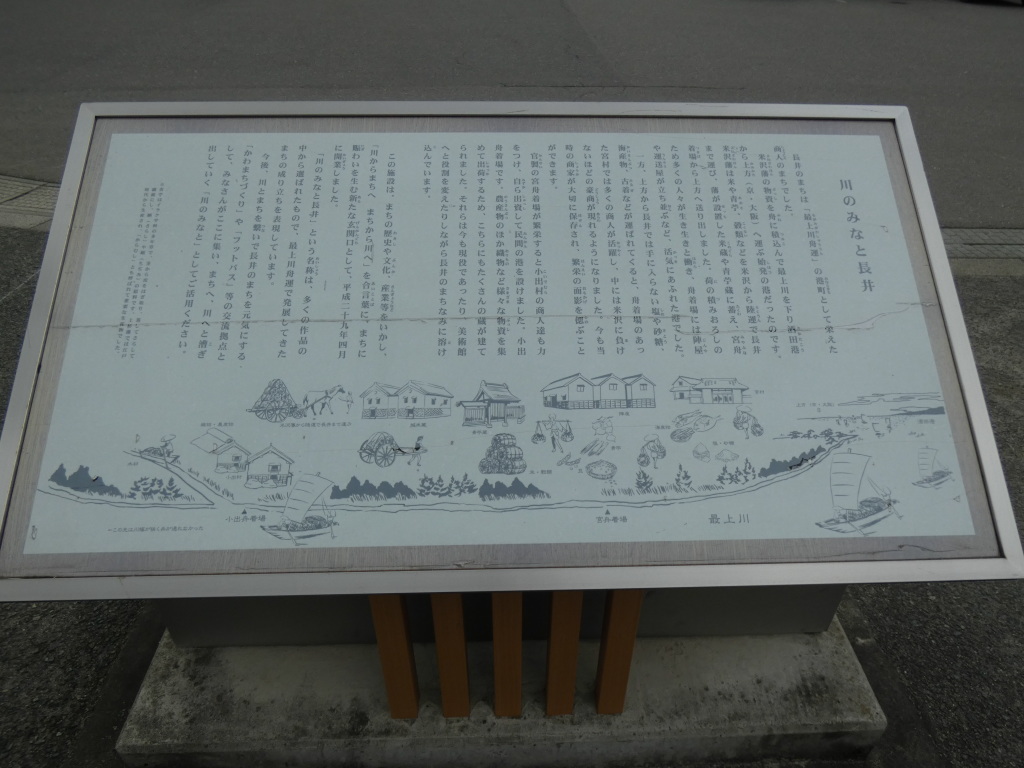 川のみなと長井
長井のまちは「最上川舟運」の港町として栄えた
商人のまちでした。
米沢藩の物資を舟に積込んで最上川を下り酒田港
から上方（京・大阪）へ運ぶ始発の港だったのです。
米沢藩は米や青苧、穀類などを米沢から陸運で長井
まで運び、藩が設置した米蔵や青苧蔵に蓄え、宮舟
着場から上方へ送り出しました。荷の積みおろしの
ため多くの人々が生き生きと働き、舟着場には陣屋
や運送屋が立ち並ぶなど、活気にあふれた港でした。
一方、上方から長井では手に入らない塩や砂糖、
海産物、古着などが運ばれてくると、舟着場のあっ
た宮村では多くの商人が活躍し、中には米沢に負け
ないほどの豪商が現れるようになりました。今も当
時の商家が大切に保存され、繁栄の面影を偲ぶこと
ができます。
官製の宮舟着場が繁栄すると小出村の商人達も力
をつけ、自ら出資して民間の港を設けました。小出
舟着場です。農産物のほか織物など様々な物資を集
めて出荷するため、こちらにもたくさんの蔵が建て
られました。それらは今も現役であったり、美術館
へと役割を変えたりしながら長井のまちなみに溶け
込んでいます。
この施設は、まちの歴史や文化、産業等をいかし、
「川からまちへ　まちから川へ」を合言葉に、まちに
賑わいを生む新たな玄関口として、平成二十九年四月
に開業しました。
「川のみなと長井」という名称は、多くの作品の
中から選ばれたもので、最上川舟運で発展してきた
まちの成り立ちを表現しています。
今後、川とまちを繋いで長井のまちを元気にする
「かわまちづくり」や「フットパス」等の交流拠点と
して、みなさんがここに集い、まちへ、川へと漕ぎ
出していく「川のみなと」としてご活用ください。
小出舟着場
宮舟着場
最上川